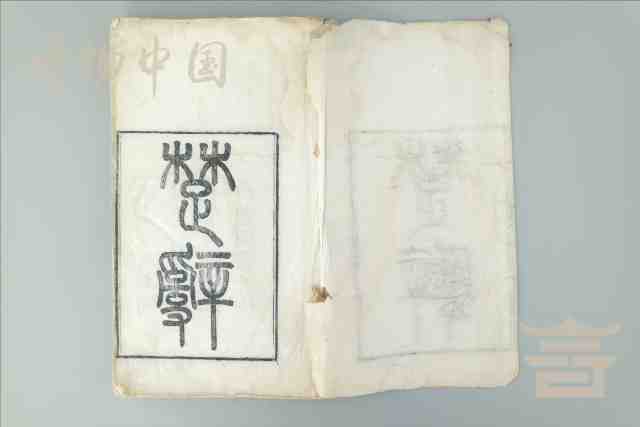 中国
楚
辭